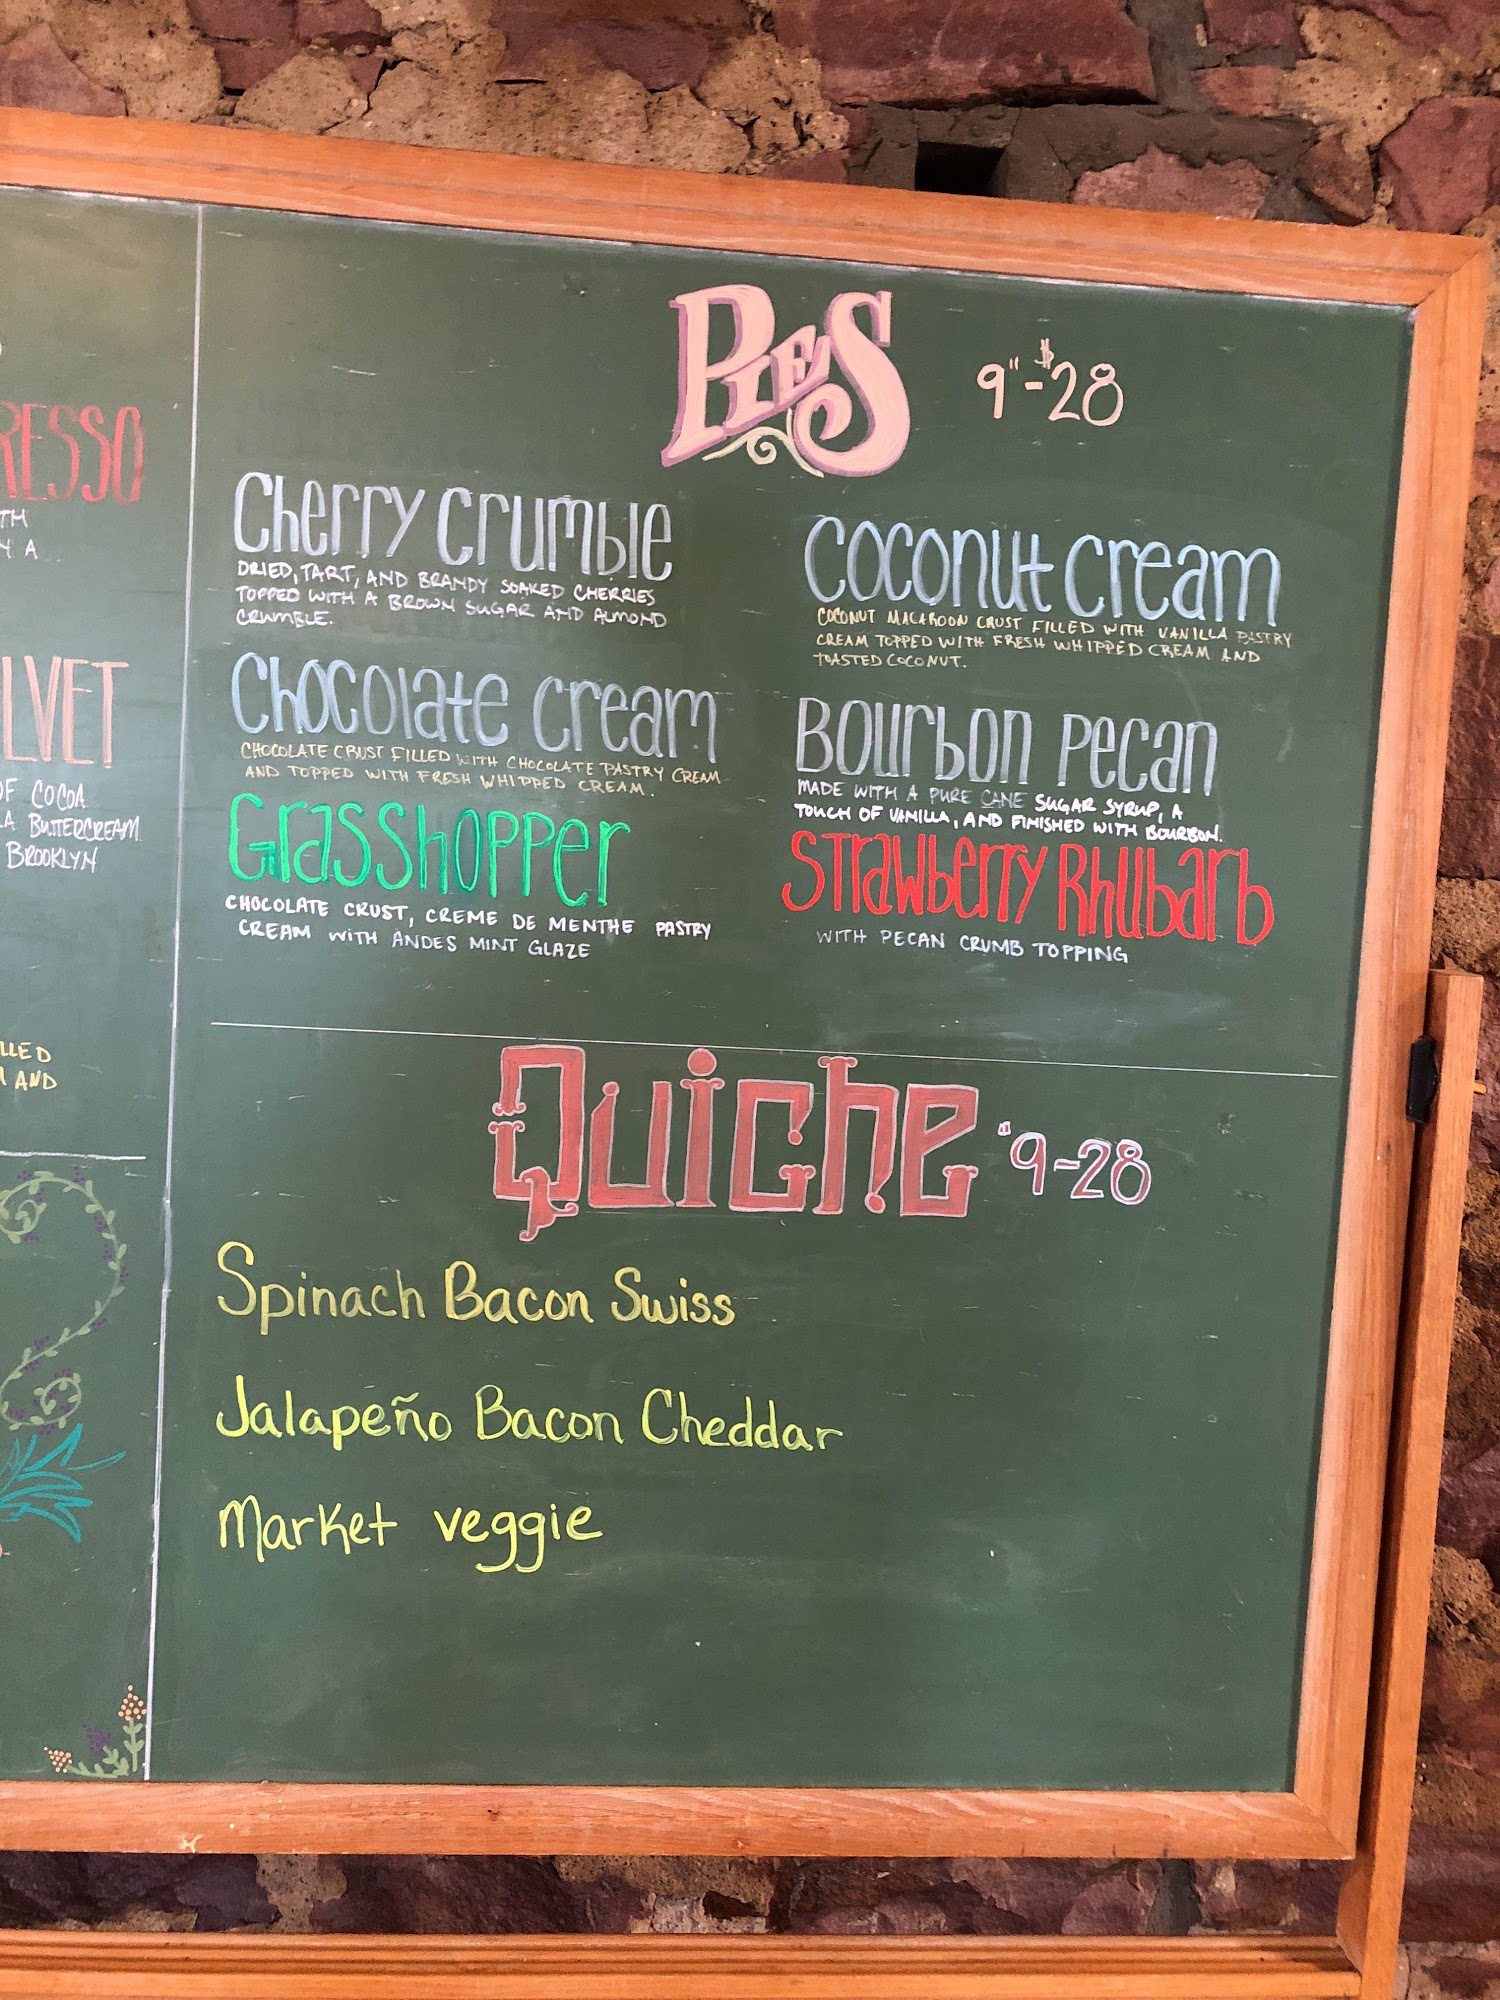 RESSO
TH
Y A
LVET
OF COCOA
LA BUTTERCREAM
BROOKLYN
LLED
AND
PIES 9"-$28
Cherry Crumble
DRIED, TART, AND BRANDY SOAKED CHERRIES
TOPPED WITH A BROWN SUGAR AND ALMOND
CRUMBLE.
Chocolate Cream
CHOCOLATE CRUST FILLED WITH CHOCOLATE PASTRY CREAM
AND TOPPED WITH FRESH WHIPPED CREAM.
Grasshopper
CHOCOLATE CRUST, CREME DE MENTHE PASTRY
CREAM WITH ANDES MINT GLAZE
Coconut Cream
COCONUT MACAROON CRUST FILLED WITH VANILLA PASTRY
CREAM TOPPED WITH FRESH WHIPPED CREAM AND
TOASTED COCONUT.
Bourbon Pecan
MADE WITH A PURE CANE SUGAR SYRUP, A
TOUCH OF VANILLA, AND FINISHED WITH BOURBON.
Strawberry Rhubarb
WITH PECAN CRUMB TOPPING
Quiche "9-28
Spinach Bacon Swiss
Jalapeño Bacon Cheddar
Market veggie